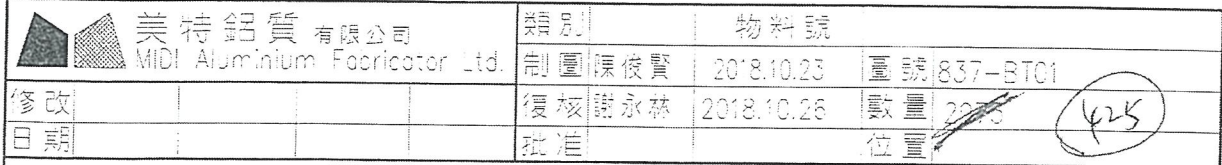 美特鋁質 有限公司
MIDI Aluminium Fabricator Ltd.
類別 物料號
制圖 陳俊賢 2018.10.23 圖號 837-BT01
修改 復核 謝永林 2018.10.26 數量 425
日期 批准 位置